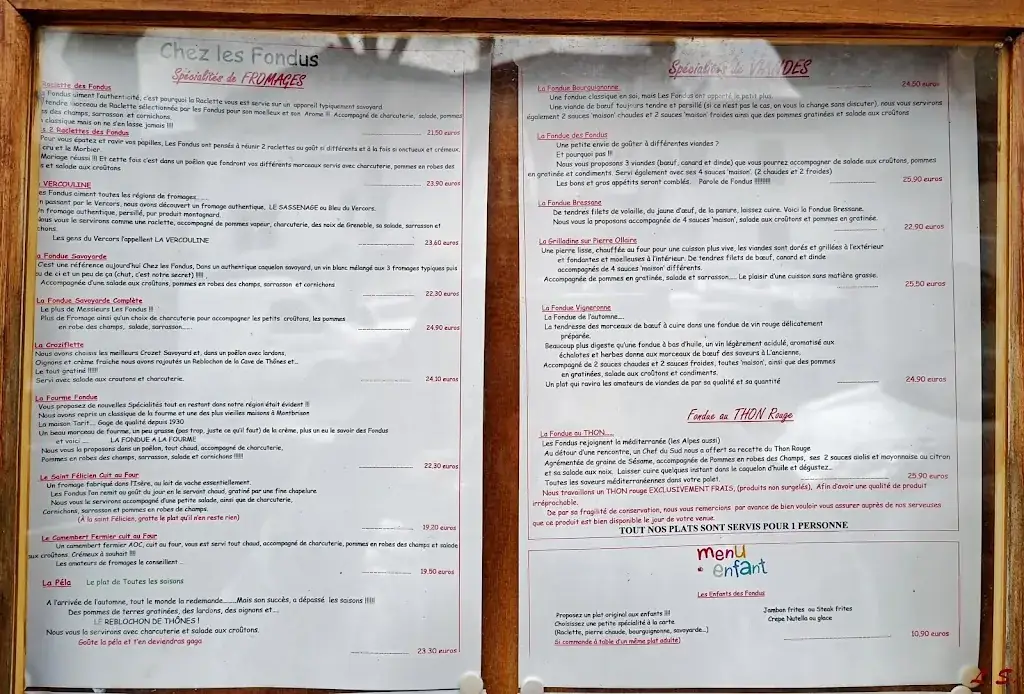 Chez les Fondus
Spécialités de FROMAGES
Raclette des Fondus
Fondus aiment l'authenticité, c'est pourquoi la Raclette vous est servie sur un appareil typiquement savoyard.
tendre morceau de Raclette sélectionnée par les Fondus pour son moelleux et son Arome !!! Accompagné de charcuterie, salade, pommes
des champs, sarrasson et cornichons.
classique mais on ne s'en lasse jamais !!!!
21,50 euros
2 Raclettes des Fondus
Pour vous épatez et ravir vos papilles, Les Fondus ont pensés à réunir 2 raclettes au goût si différents et à la fois si onctueux et crémeux.
cru et le Morbier.
Mariage réussi !!! Et cette fois c'est dans un poêlon que fondront vos différents morceaux servis avec charcuterie, pommes en robes des
et salade aux croûtons.
23.90 euros
VERCOULINE
es Fondus aiment toutes les régions de fromages......
n passant par le Vercors, nous avons découvert un fromage authentique, LE SASSENAGE ou Bleu du Vercors.
n fromage authentique, persillé, pur produit montagnard.
ous vous le servirons comme une raclette, accompagné de pommes vapeur, charcuterie, des noix de Grenoble, sa salade, sarrasson et
chons.
Les gens du Vercors l'appellent LA VERCOULINE
23,60 euros
a Fondue Savoyarde
C'est une référence aujourd'hui Chez les Fondus, Dans un authentique caquelon savoyard, un vin blanc mélangé aux 3 fromages typiques puis
u de ci et un peu de ça (chut, c'est notre secret) !!!!
Accompagnée d'une salade aux croûtons, pommes en robes des champs, sarrasson et cornichons
22,30 euros
La Fondue Savoyarde Complète
Le plus de Messieurs Les Fondus !!!
Plus de Fromage ainsi qu'un choix de charcuterie pour accompagner les petits croûtons, les pommes
en robe des champs, salade, sarrasson.....
24,90 euros
La Croziflette
Nous avons choisis les meilleurs Crozet Savoyard et, dans un poêlon avec lardons,
Oignons et crème fraiche nous avons rajoutés un Reblochon de la Cave de Thônes et...
Le tout gratiné !!!!!!
Servi avec salade aux croutons et charcuterie.
24,10 euros
La Fourme Fondue
Vous proposez de nouvelles Spécialités tout en restant dans notre région était évident !!!
Nous avons repris un classique de la fourme et une des plus vieilles maisons à Montbrison
La maison Tarit.... Gage de qualité depuis 1930
Un beau morceau de fourme, un peu grasse (pas trop, juste ce qu'il faut) de la crème, plus un eu le savoir des Fondus
et voici .... LA FONDUE A LA FOURME
Nous vous la proposons dans un poêlon, tout chaud, accompagné de charcuterie,
Pommes en robes des champs, sarrasson, salade et cornichons !!!!!!
22.30 euros
Le Saint Félicien Cuit au Four
Un fromage fabriqué dans l'Isère, au lait de vache essentiellement.
Les Fondus l'on remit au goût du jour en le servant chaud, gratiné par une fine chapelure
Nous vous le servirons accompagné d'une petite salade, ainsi que de charcuterie,
Cornichons, sarrasson et pommes en robes de champs.
(À la saint Félicien, gratte le plat qu'il n'en reste rien)
19,20 euros
Le Camembert Fermier cuit au Four
Un camembert fermier AOC, cuit au four, vous est servi tout chaud, accompagné de charcuterie, pommes en robes des champs et salade
aux croûtons. Crémeux à souhait !!!!
Les amateurs de fromages le conseillent ...
19.50 euros
La Péla Le plat de Toutes les saisons
A l'arrivée de l'automne, tout le monde la redemande........Mais son succès, a dépassé les saisons !!!!!!
Des pommes de terres gratinées, des lardons, des oignons et....
LE REBLOCHON DE THÔNES !
Nous vous la servirons avec charcuterie et salade aux croûtons.
Goûte la péla et t'en deviendras gaga
23.30 euros
Spécialités de VIANDES
La Fondue Bourguignonne
24,50 euros
Une fondue classique en soi, mais Les Fondus ont apporté le petit plus.
Une viande de bœuf toujours tendre et persillé (si ce n'est pas le cas, on vous la change sans discuter), nous vous servirons
également 2 sauces 'maison' chaudes et 2 sauces 'maison' froides ainsi que des pommes gratinées et salade aux croûtons
La Fondue des Fondus
Une petite envie de goûter à différentes viandes ?
Et pourquoi pas !!!
Nous vous proposons 3 viandes (bœuf, canard et dinde) que vous pourrez accompagner de salade aux croûtons, pommes
en gratinée et condiments. Servi également avec ses 4 sauces 'maison'. (2 chaudes et 2 froides)
Les bons et gros appétits seront comblés. Parole de Fondus !!!!!!!!!!
25,90 euros
La Fondue Bressane
De tendres filets de volaille, du jaune d'œuf, de la panure, laissez cuire. Voici la Fondue Bressane.
Nous vous la proposons accompagné de 4 sauces 'maison', salade aux croûtons et pommes en gratinée.
22.90 euros
La Grilladina sur Pierre Ollaire
Une pierre lisse, chauffée au four pour une cuisson plus vive, les viandes sont dorés et grillées à l'extérieur
et fondantes et moelleuses à l'intérieur. De tendres filets de bœuf, canard et dinde
accompagnés de 4 sauces 'maison' différents.
Accompagnée de pommes en gratinée, salade et sarrasson..... Le plaisir d'une cuisson sans matière grasse.
25,50 euros
La Fondue Vigneronne
La Fondue de l'automne....
La tendresse des morceaux de bœuf à cuire dans une fondue de vin rouge délicatement
préparée.
Beaucoup plus digeste qu'une fondue à bas d'huile, un vin légèrement acidulé, aromatisé aux
échalotes et herbes donne aux morceaux de bœuf des saveurs à L'ancienne.
Accompagné de 2 sauces chaudes et 2 sauces froides, toutes 'maison', ainsi que des pommes
en gratinées, salade aux croûtons et condiments.
Un plat qui ravira les amateurs de viandes de par sa qualité et sa quantité
24.90 euros
Fondue au THON Rouge
La Fondue au THON.....
Les Fondus rejoignent la méditerranée (les Alpes aussi)
Au détour d'une rencontre, un Chef du Sud nous a offert sa recette du Thon Rouge
Agrémentée de graine de Sésame, accompagnée de Pommes en robes des Champs, ses 2 sauces aiolis et mayonnaise au citron
et sa salade aux noix. Laisser cuire quelques instant dans le caquelon d'huile et dégustez...
Toutes les saveurs méditerranéennes dans votre palet.
25,90 euros
Nous travaillons un THON rouge EXCLUSIVEMENT FRAIS, (produits non surgelés), Afin d'avoir une qualité de produit
irréprochable.
De par sa fragilité de conservation, nous vous remercions par avance de bien vouloir vous assurer auprès de nos serveuses
que ce produit est bien disponible le jour de votre venue.
TOUT NOS PLATS SONT SERVIS POUR 1 PERSONNE
menu
enfant
Les Enfants des Fondus
Proposez un plat original aux enfants !!!!
Choisissez une petite spécialité à la carte
(Raclette, pierre chaude, bourguignonne, savoyarde...)
Si commande à table d'un même plat adulte)
Jambon frites ou Steak frites
Crepe Nutella ou glace
10,90 euros
L S